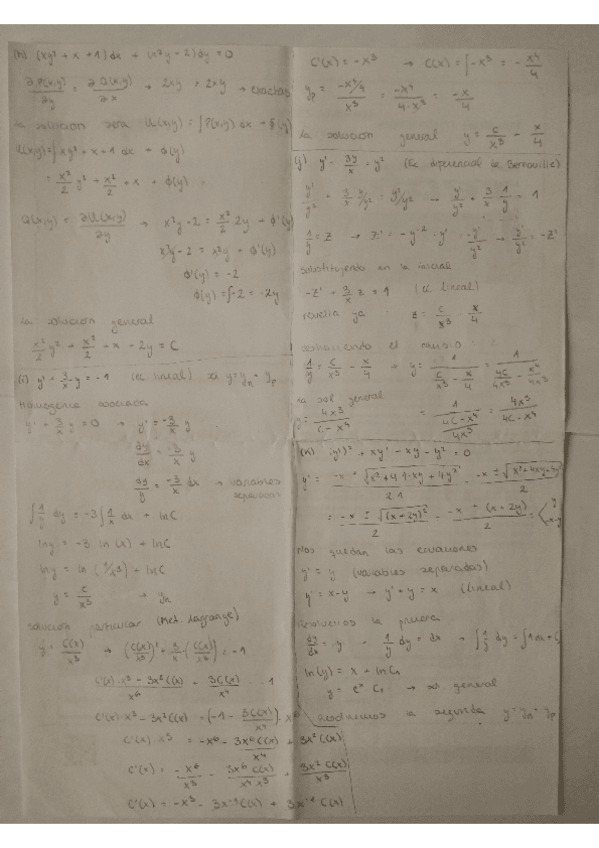 (h) (xy² + x + 1)dx + (x²y - 2)dy = 0
∂P(x,y)/∂y = ∂Q(x,y)/∂x → 2xy = 2xy → exactas
La solución será U(x,y) = ∫P(x,y) dx + φ(y)
U(x,y) = ∫xy² + x + 1 dx + φ(y)
= x²/2 y² + x²/2 + x + φ(y)
Q(x,y) = ∂U(x,y)/∂y → x²y - 2 = x²/2 2y + φ'(y)
x²y - 2 = x²y + φ'(y)
φ'(y) = -2
φ(y) = ∫-2 = -2y
La solución general
x²/2 y² + x²/2 + x - 2y = C
(i) y' + 3/x y = -1 (ec lineal)
Homogenea asociada
y' + 3/x y = 0 → y' = -3/x y
dy/dx = -3/x y
dy/y = -3/x dx → variables
separadas
∫1/y dy = -3∫1/x dx + lnC
lny = -3 ln(x) + lnC
lny = ln(1/x³) + lnC
y = C/x³ → yn
solución particular (Met. Lagrange)
y = C(x)/x³ → (C(x)/x³)' + 3/x (C(x)/x³) = -1
C'(x)·x³ - 3x²C(x)/x⁶ + 3C(x)/x⁴ = -1
C'(x)·x³ - 3x²C(x) = (-1 - 3C(x)/x⁴)·x⁶
C'(x)·x³ = -x⁶ - 3x⁶C(x)/x⁴ + 3x²C(x)
C'(x) = -x⁶/x³ - 3x⁶C(x)/x⁴x³ + 3x²C(x)/x³
C'(x) = -x³ - 3x⁻¹C(x) + 3x⁻¹C(x)
C'(x) = -x³ → C(x) = ∫-x³ = -x⁴/4
yp = -x⁴/4/x³ = -x⁴/4·x³ = -x/4
La solución general y = C/x³ - x/4
(j) y' - 3y/x = y² (Ec diferencial de Bernouille)
1/y = z → z' = -y⁻²·y' = -y'/y² → y'/y² = -z'
Substituyendo en la inicial
-z' - 3/x z = 1 (ec lineal)
z = C/x³ - x/4
1/y = C/x³ - x/4 → y = 1/(C/x³ - x/4) = 1/(4C/4x³ - x⁴/4x³)
La sol general
y = 4x³/C - x⁴ = 1/(4C - x⁴/4x³) = 4x³/4C - x⁴
(k) (y')² + xy' - xy - y² = 0
y' = -x ± √x² + 4·1·xy + 4y²/2·1 = -x ± √x² + 4xy + 4y²/2
= -x ± √(x + 2y)²/2 = -x ± (x + 2y)/2
Nos quedan las ecuaciones
y' = y (variables separadas)
y' = x - y → y' + y = x (lineal)
Resolvemos la primera
dy/dx = y → 1/y dy = dx → ∫1/y dy = ∫1 dx + C
ln(y) = x + lnC₁
y = eˣ C₁ → sol general
Resolvemos la segunda y = yn + yp